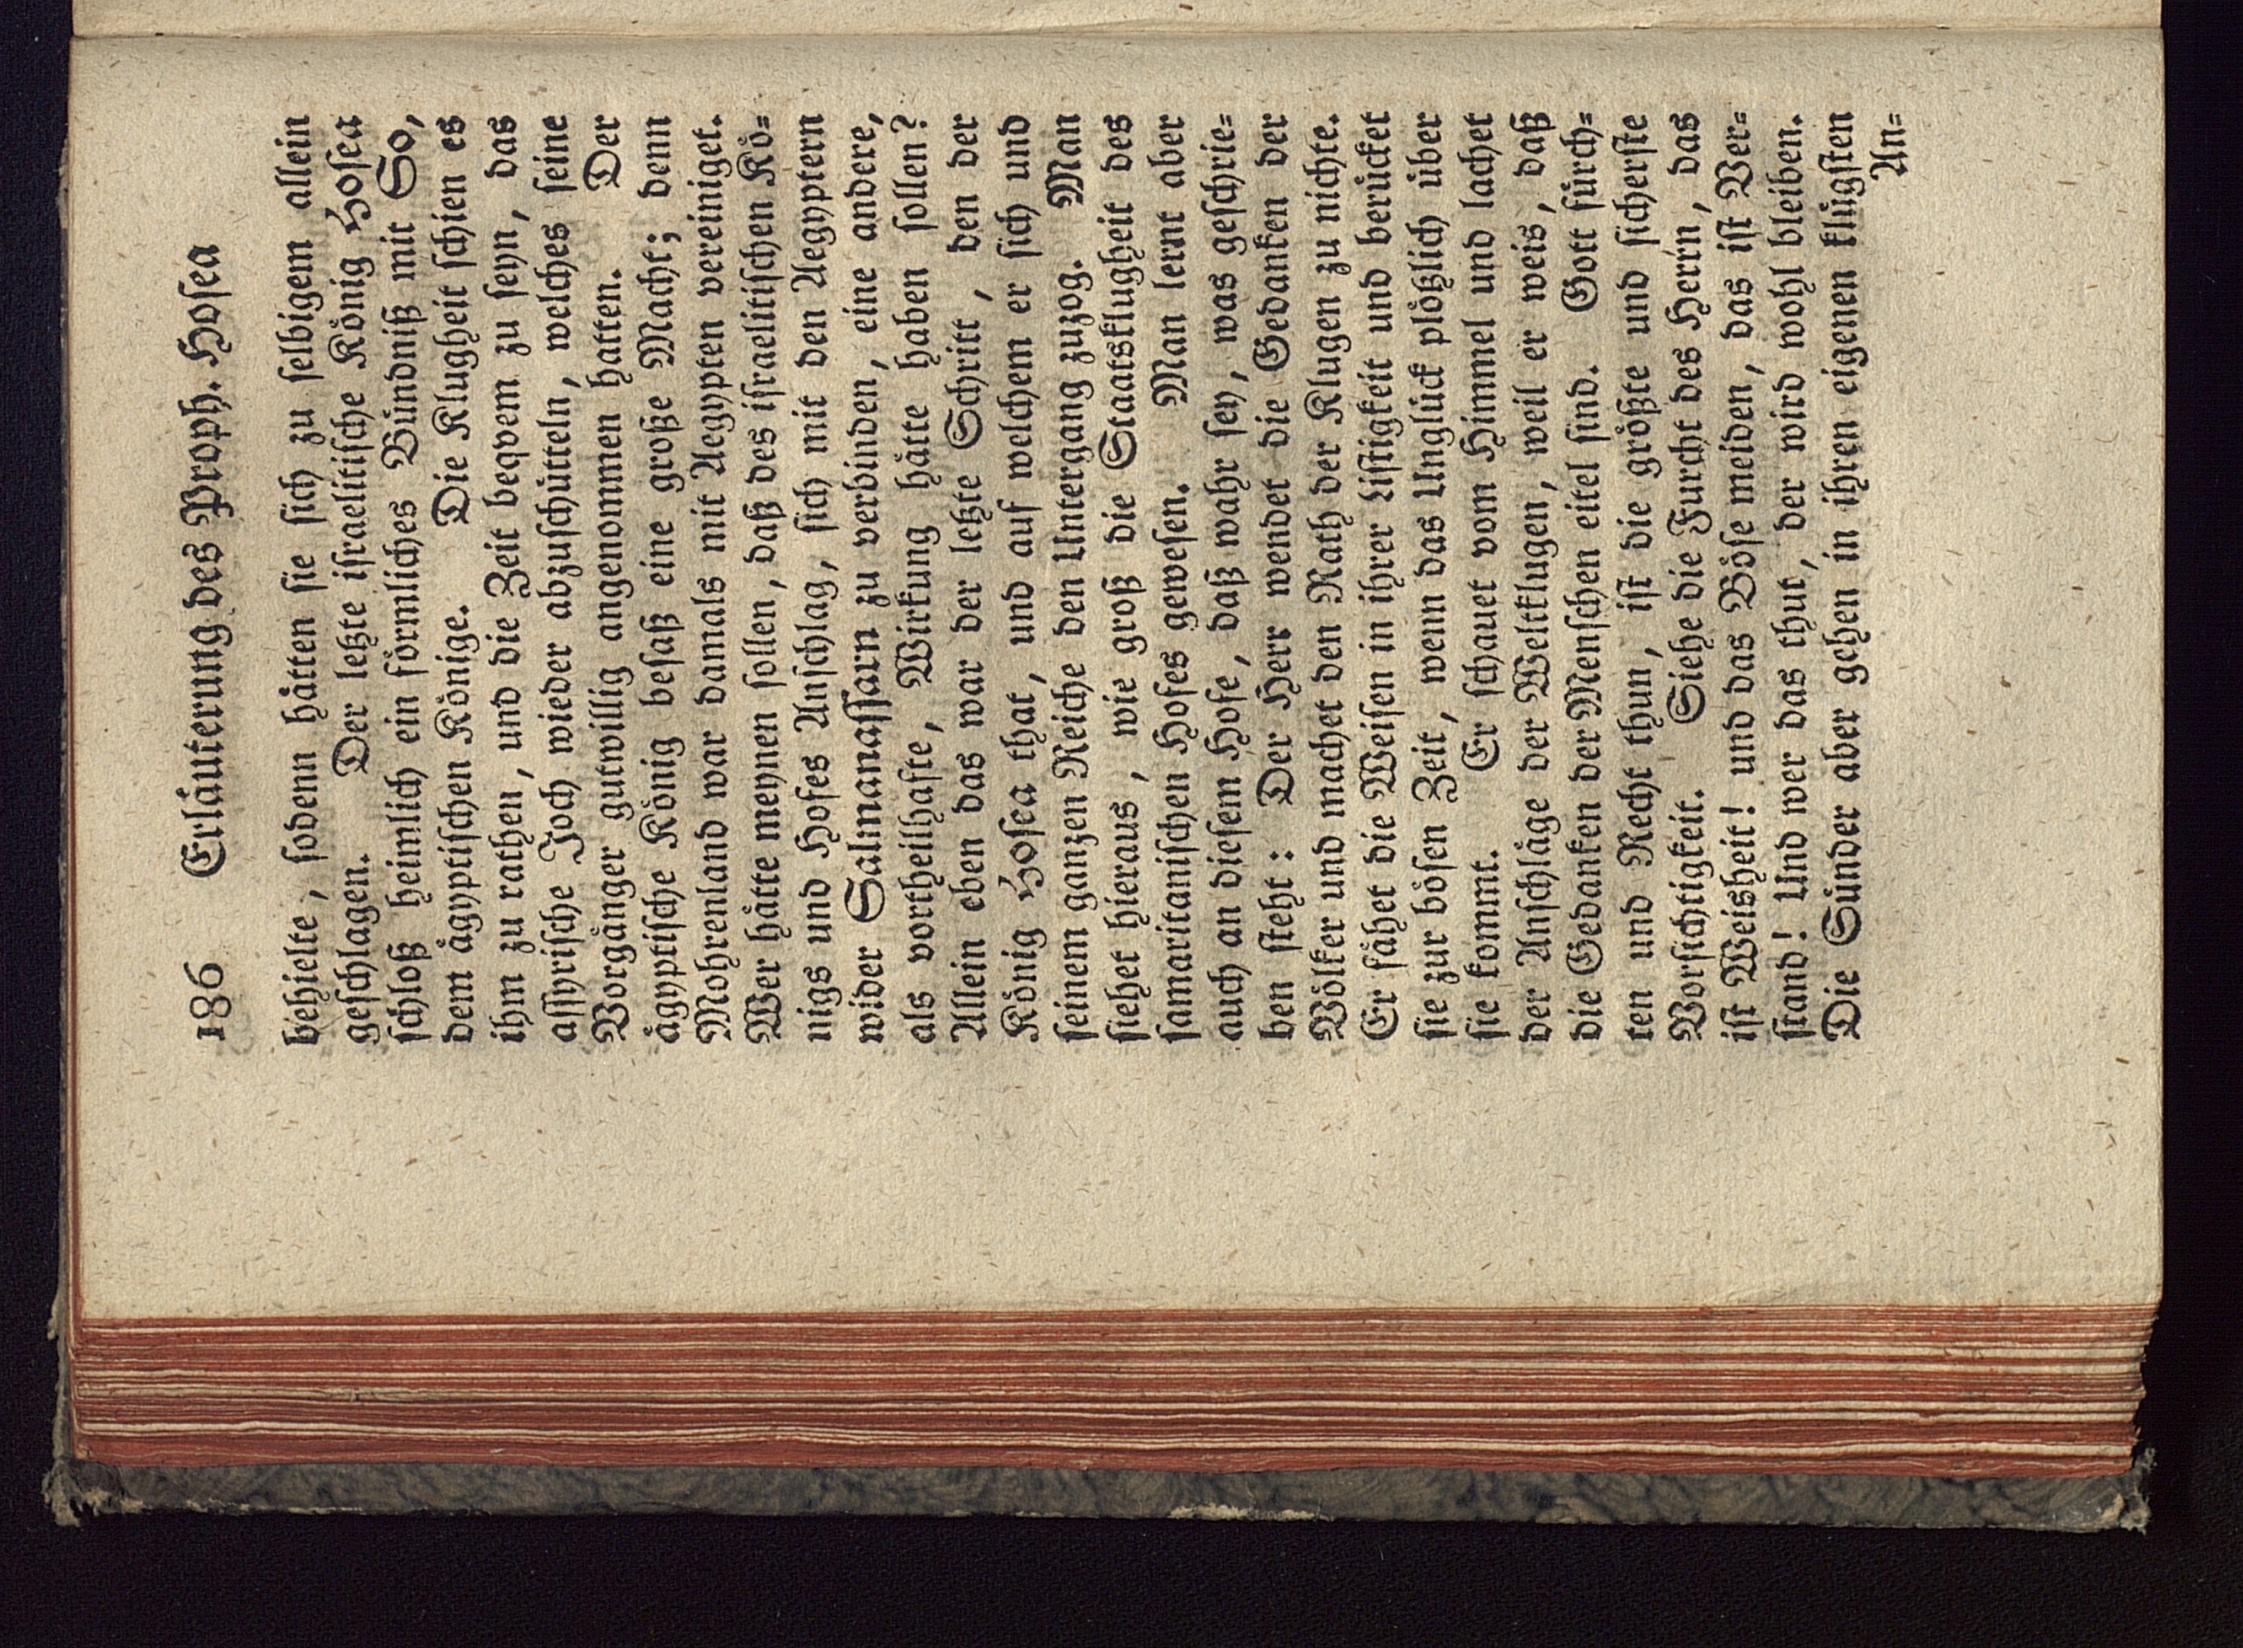 186 Erläuterung des Proph. Hosea
behielte, sodenn hätten sie sich zu selbigem allein
geschlagen. Der letzte israelitische König Hosea
schloß heimlich ein förmliches Bündniß mit So,
dem ägyptischen Könige. Die Klugheit schien es
ihm zu rathen, und die Zeit beqvem zu seyn, das
assyrische Joch wieder abzuschütteln, welches seine
Vorgänger gutwillig angenommen hatten. Der
ägyptische König besaß eine große Macht; denn
Mohrenland war damals mit Aegypten vereiniget.
Wer hätte meynen sollen, daß des israelitischen Kö-
nigs und Hofes Anschlag, sich mit den Aegyptern
wider Salmanassarn zu verbinden, eine andere,
als vortheilhafte, Wirkung hätte haben sollen?
Allein eben das war der letzte Schritt, den der
König Hosea that, und auf welchem er sich und
seinem ganzen Reiche den Untergang zuzog. Man
siehet hieraus, wie groß die Staatsklugheit des
samaritanischen Hofes gewesen. Man lernt aber
auch an diesem Hofe, daß wahr sey, was geschrie-
ben steht: Der Herr wendet die Gedanken der
Völker und machet den Rath der Klugen zu nichte.
Er fähet die Weisen in ihrer Listigkeit und berücket
sie zur bösen Zeit, wenn das Unglück plötzlich über
sie kommt. Er schauet vom Himmel und lachet
der Anschläge der Weltklugen, weil er weis, daß
die Gedanken der Menschen eitel sind. Gott fürch-
ten und Recht thun, ist die größte und sicherste
Vorsichtigkeit. Siehe die Furcht des Herrn, das
ist Weisheit! und das Böse meiden, das ist Ver-
stand! Und wer das thut, der wird wohl bleiben.
Die Sünder aber gehen in ihren eigenen klügsten
An-